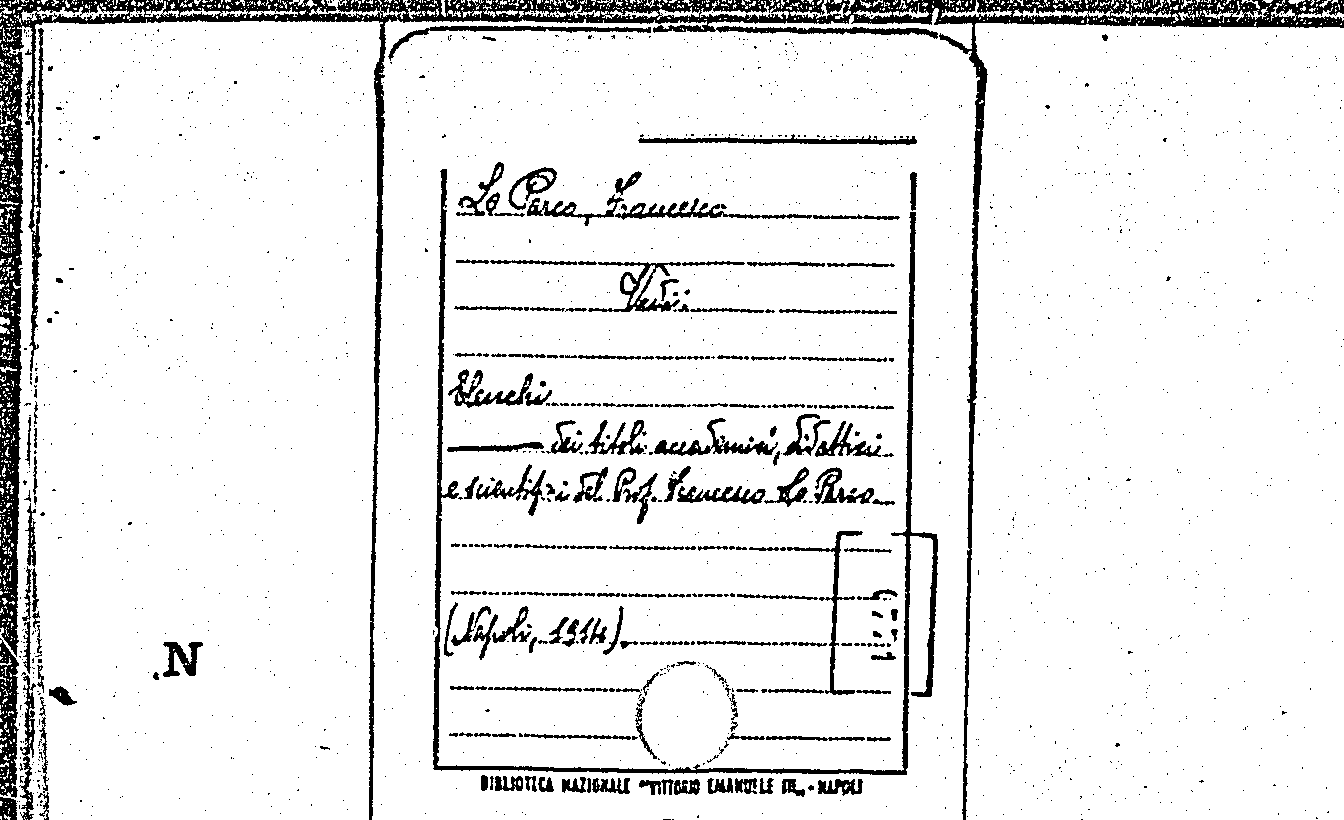 Lo Parco, Francesco
Vedi:
Elenchi
dei titoli accademici, didattici
e scientifici del Prof. Francesco Lo Parco
(Napoli, 1914).
N
BIBLIOTECA NAZIONALE "VITTORIO EMANUELE III„ - NAPOLI